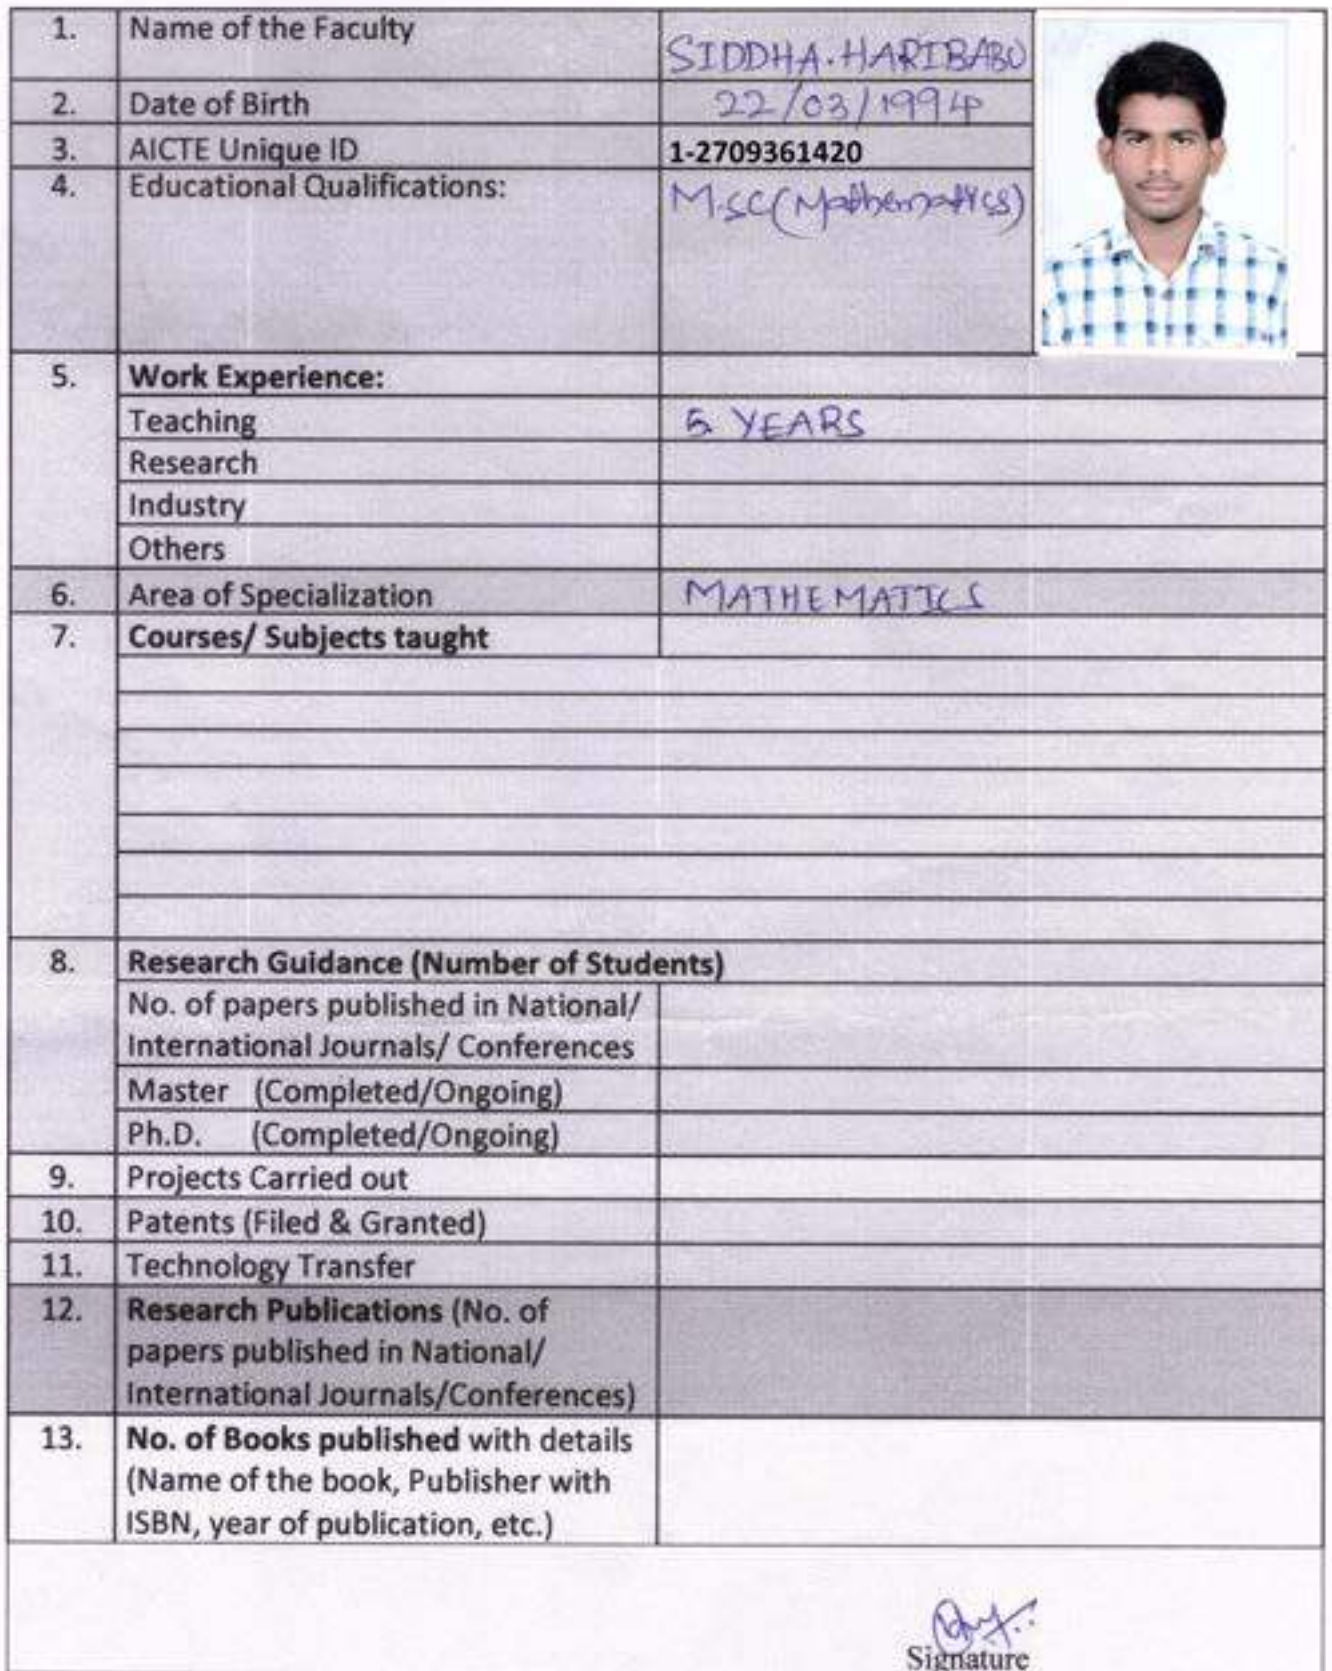 1. Name of the Faculty SIDDHA.HARIBABU
2. Date of Birth 22/03/1994
3. AICTE Unique ID 1-2709361420
4. Educational Qualifications: M.SC(Mathematics)
5. Work Experience:
Teaching 5 YEARS
Research
Industry
Others
6. Area of Specialization MATHEMATICS
7. Courses/ Subjects taught
8. Research Guidance (Number of Students)
No. of papers published in National/
International Journals/ Conferences
Master (Completed/Ongoing)
Ph.D. (Completed/Ongoing)
9. Projects Carried out
10. Patents (Filed & Granted)
11. Technology Transfer
12. Research Publications (No. of
papers published in National/
International Journals/Conferences)
13. No. of Books published with details
(Name of the book, Publisher with
ISBN, year of publication, etc.)
Signature